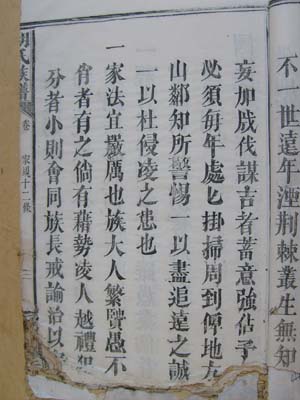 不一世遠年湮荆棘叢生無知
妄加戕伐謀吉者蓄意强佔予
必須每年處匕掛掃周到俾地方
山鄰知所警惕一以盡追遠之誠
一以杜侵凌之患也
一家法宜嚴厲也族大人繁賢愚不
肖者有之倘有藉勢凌人越禮犯
分者小則會同族長戒諭治以
胡氏族譜
卷
家規十二條